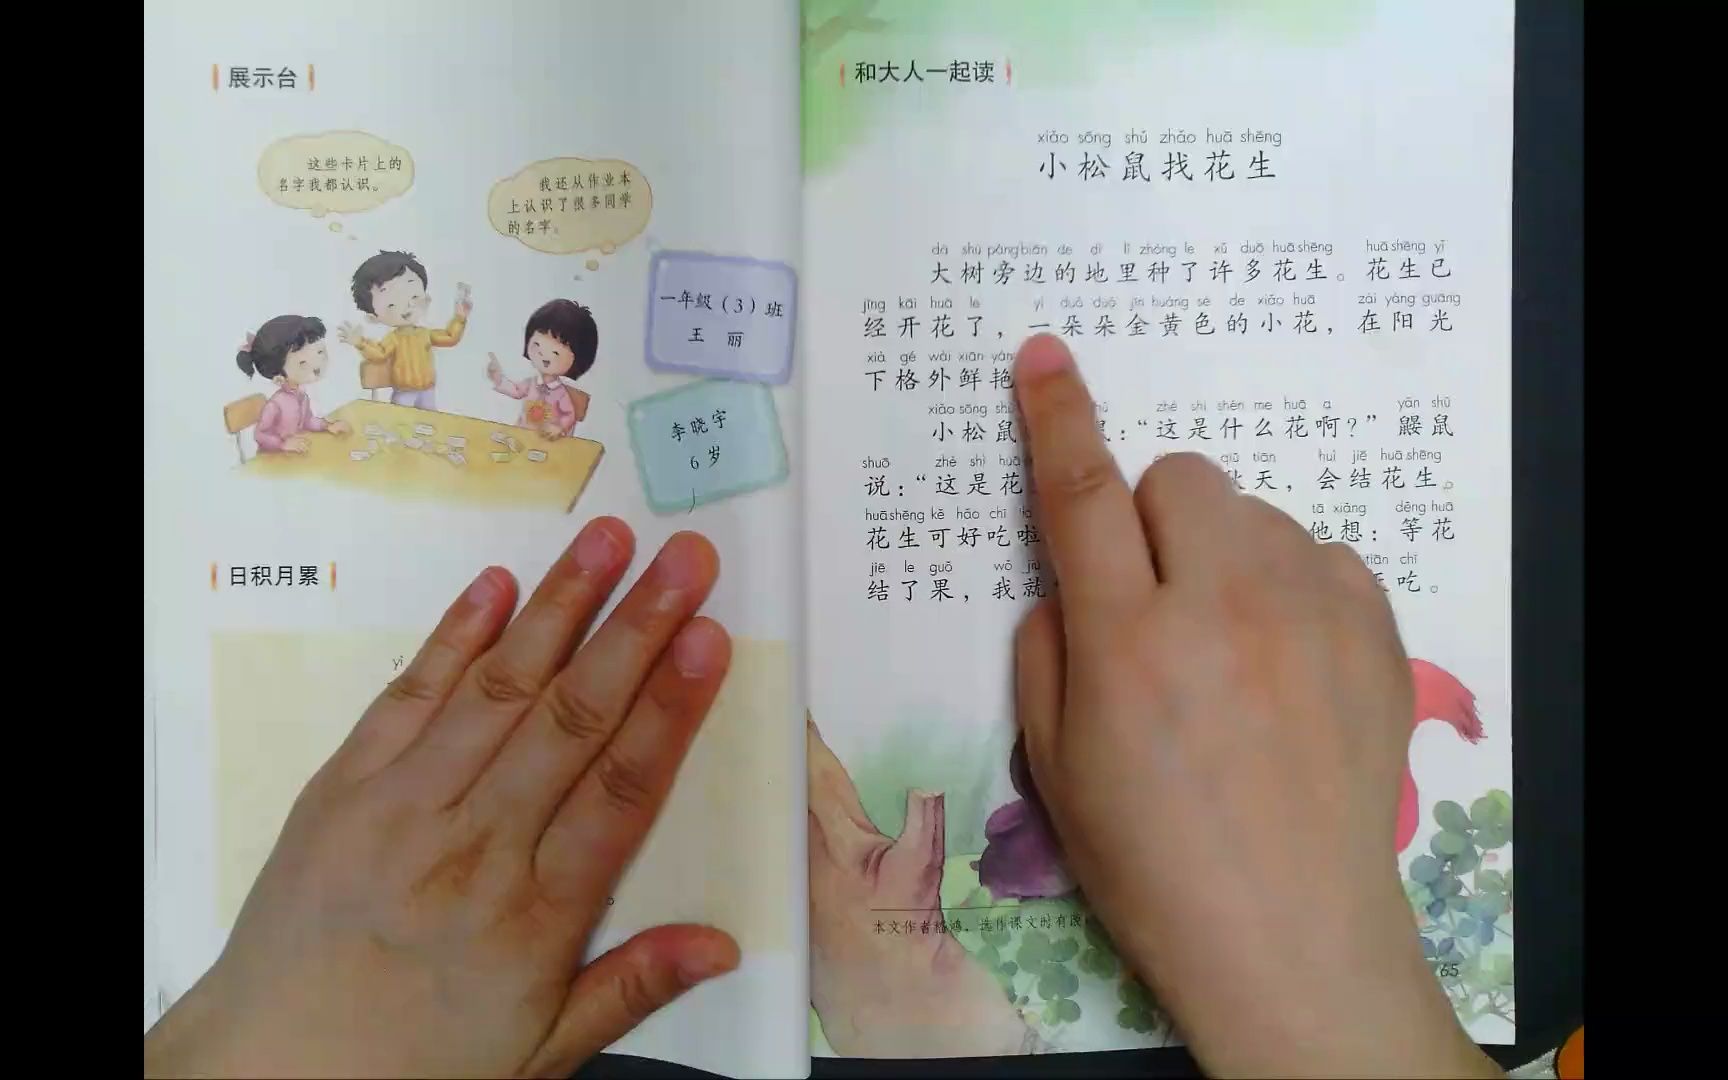 展示台
这些卡片上的
名字我都认识。
我还从作业本
上认识了很多同学
的名字。
一年级（3）班
王 丽
李晓宇
6岁
日积月累
yì
和大人一起读
xiǎo sōng shǔ zhǎo huā shēng
小松鼠找花生
dà shù páng biān de dì lǐ zhòng le xǔ duō huā shēng huā shēng yǐ
大树旁边的地里种了许多花生。花生已
jīng kāi huā le yì duǒ duǒ jīn huáng sè de xiǎo huā zài yáng guāng
经开花了，一朵朵金黄色的小花，在阳光
xià gé wài xiān yàn
下格外鲜艳
xiǎo sōng shǔ zhè shì shén me huā a yǎn shǔ
小松鼠 鼠：“这是什么花啊？”鼹鼠
shuō zhè shì huā qiū tiān huì jiē huā shēng
说：“这是花 秋天，会结花生。
huā shēng kě hǎo chī la tā xiǎng děng huā
花生可好吃啦 他想：等花
jiē le guǒ wǒ jiù tiān chī
结了果，我就 天吃。
本文作者 ，选作课文时有改
65